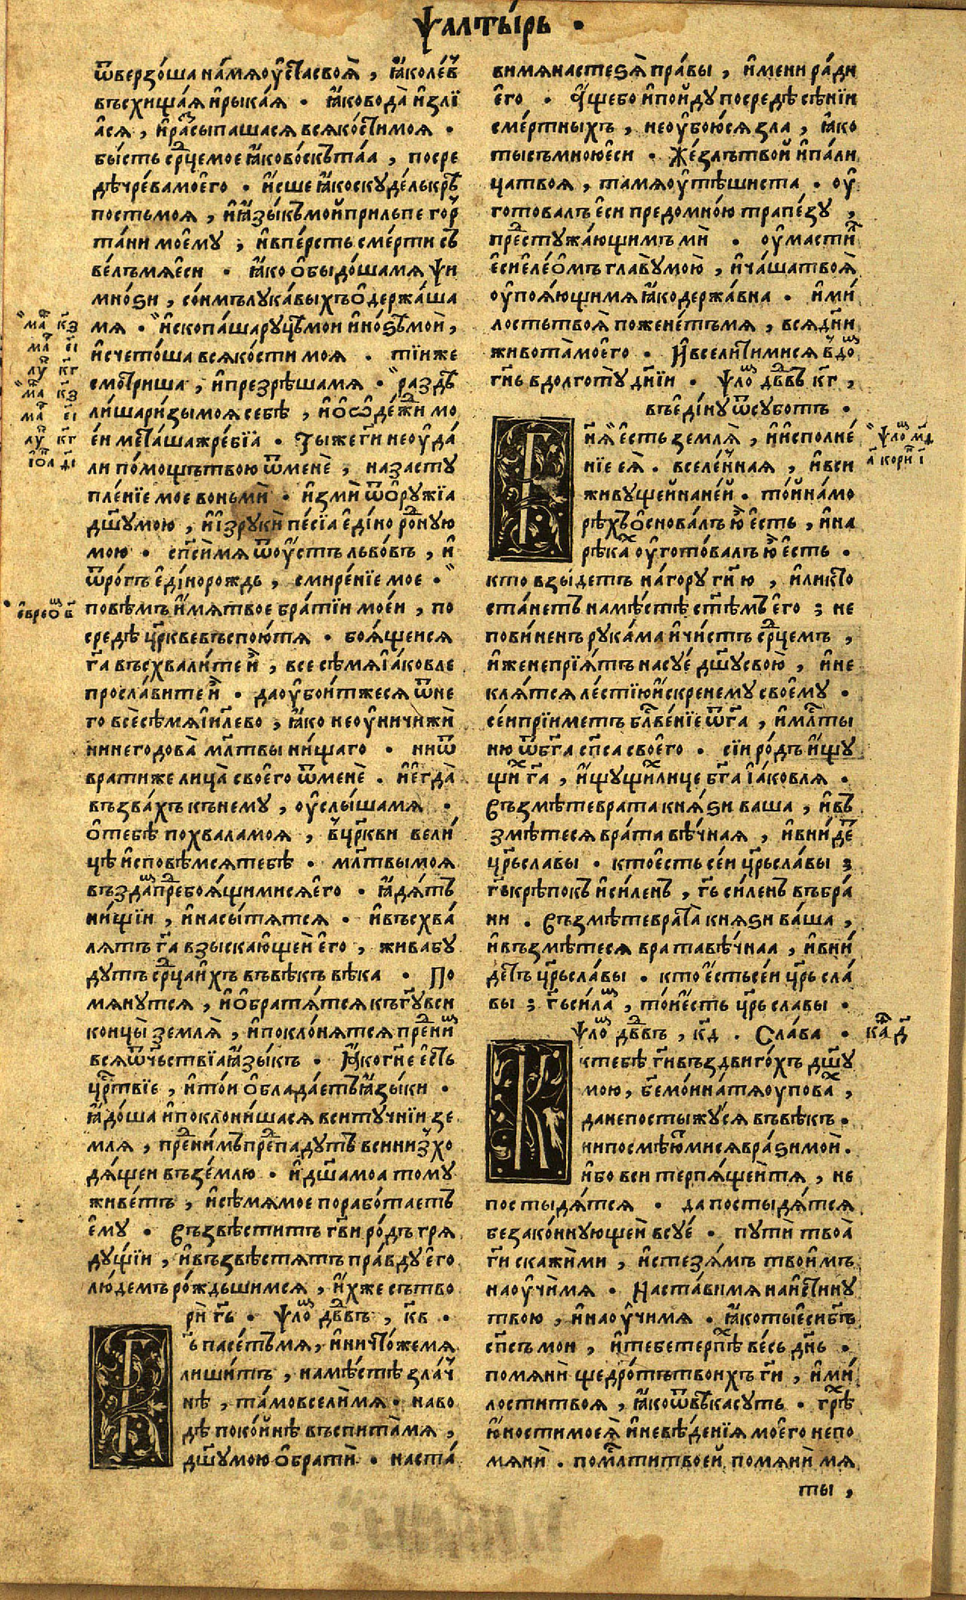 Ѱалты́рь ·
ѿверзо́ша на́ мя оу҆ста̀ своѧ҆̀ , ꙗ҆́ко ле́въ
въсхища́ѧ и҆ рыка́ѧ · ꙗ҆́ко вода̀ и҆злїѧ́
ѧ́сѧ , и҆ ра́сыпашасѧ всѧ ко́сти моѧ ·
бы́сть ср҃це мое ꙗ҆́ко во́скъ таѧ , посре
дѣ чре́ва моегѡ · и҆́сше ꙗ҆́ко скуде́ль крѣ́
пость моѧ , и҆ ꙗ҆зы́къ мой прильпе гор
та́ни моемꙋ ; и҆ в пе́рсть сме́рти съ
ве́лъ мѧ еси · ꙗ҆́ко ѡ҆быдо́ша мѧ пси
мно́ѕи , со́нмъ лука́выхъ ѡ҆держа́ша
мѧ · и҆скопа́ша руцѣ мои и҆ но́ѕѣ мои ,
и҆счето́ша всѧ ко́сти моѧ · ті́и же
смотри́ша , и҆ презрѣ́ша мѧ · раздѣ
ли́ша ри́зы моѧ себѣ , и҆ ѡ҆ ѡ҆де́жи мо
е́и мета́ша жре́бїѧ · Ты́ же гⷭ҇и не оу҆да
ли по́мощъ твою ѿ менѐ , на засту
пле́нїе мое вонми · и҆зми ѿ ѻ҆ру́жїа
дш҃у мою , и҆ и҆з руки пе́сїа е҆діноро́нꙋю
мою · спс҃и мѧ ѿ оу҆стъ льво́въ , и҆
ѿ рогъ е҆ді́норождь , смире́нїе мое ·
повѣ́мъ и҆́мѧ твое бра́тїи мое́и , по
средѣ цр҃кве въспою́ тѧ · боѧ́щеисѧ
гⷭ҇а въсхвали́те и҆ , все сѣ́мѧ і҆а́ковле
просла́вите и҆ · да оу҆бои́тжесѧ ѿ не
го всѐ сѣ́мѧ і҆и҃лево , ꙗ҆́ко не оу҆ничижѝ
ни негодова̀ мл҃твы ни́щаго · ни ѿ
врати́ же лица̀ своегѡ ѿ менѐ · и҆ е҆гда̀
възва́хъ къ нему , оу҆слы́ша мѧ ·
ѿ тебѣ похвала моѧ , в цр҃кви вели́
цѣ и҆сповѣ́мсѧ тебѣ · мл҃твы моѧ
възда́мъ пред боѧ́щимисѧ е҆го · ꙗ҆дѧ́тъ
ни́щїи , и҆ насы́тѧтсѧ · и҆ въсхва́
лѧтъ гⷭ҇а взыска́ющеи е҆го , жива бу
дутъ ср҃ца и҆́хъ въ вѣ́къ вѣка · По
мѧну́тсѧ , и҆ ѡ҆братѧ́тсѧ къ гⷭ҇у вси
концы землѧ̀ , и҆ поклонѧ́тсѧ пред ни́мъ
всѧ ѿчьствїа ꙗ҆зы́къ · ꙗ҆́ко гⷭ҇не е҆́сть
црⷭ҇твїе , и҆ то́и ѡ҆блада́етъ ꙗ҆зы́ки ·
ꙗ҆до́ша и҆ поклони́шасѧ вси ту́чнїи зе
млѧ , пред ни́мъ припаду́тъ вси низхо
дѧ́щеи въ зе́млю · и҆ дш҃а моѧ тому
живе́тъ , и҆ сѣ́мѧ мое порабо́таетъ
е҆му · Възвѣсти́тъ гⷭ҇ви ро́дъ грѧ
ду́щїи , и҆ възвѣстѧ́тъ пра́вду е҆го
лю́демъ ро́ждьшимсѧ , и҆́хже сътво
ри гⷭ҇ь · Ѱло́м дв҃двъ , к҃в ·
Гⷭ҇ь пасе́тъ мѧ , и҆ ничто́же мѧ
лиши́тъ , на мѣ́стѣ зла́ч
нѣ , та́мо всели́ мѧ · на во
дѣ поко́йнѣ въспита́ мѧ ,
дш҃у мою ѡ҆брати̑ · наста́
ви мѧ на стеѕѧ̀ пра́вы , и҆́мени ра́ди
е҆го · А҆́ще бо и҆ пойду посредѣ сѣ́ни
сме́ртныхъ , не оу҆бою́сѧ зла , ꙗ҆́ко
ты съ мною еси · Же́злъ твой и҆ па́ли
ца твоѧ , та мѧ оу҆тѣ́шиста · оу҆
гото́валъ е҆си предо мно́ю трапе́зу ,
пред стужа́ющимъ мѝ · оу҆масти́лъ
е҆си е҆ле́омъ главу мою , и҆ ча́ша твоѧ̀
оу҆поѧ́ющи мѧ ꙗ҆́ко держа́вна · и҆ ми́
лость твоѧ пожене́тъ мѧ , всѧ дн҃и
живота̀ моегѡ · И҆ всели́ти ми сѧ в до́м
гⷭ҇нь в долготу́ дні́и · Ѱло́м дв҃двъ к҃г ,
въ е҆ди́ну ѿ субо́тъ ·
Гⷭ҇нѧ е҆́сть землѧ̀ , и҆ и҆сполне́
нїе е҆ѧ̀ · вселе́ннаѧ , и҆ вси
живу́щей на не́й · То́й на мо́
рѣхъ ѡ҆снова́лъ ю҆ е҆́сть , и҆ на
рѣка́х оу҆гото́валъ ю҆ е҆́сть ·
кто взы́детъ на го́ру гⷭ҇ню , и҆ли кто
ста́нетъ на мѣ́стѣ ст҃ѣмъ е҆го ; не
пови́ненъ рука́ма и҆ чи́стъ ср҃цемъ ,
и҆́же не прїѧ́тъ на су́е дш҃у свою̀ , и҆ не
клѧ́тсѧ ле́стїю и҆́скренему своему ·
се́и прїи́метъ блⷭ҇ве́нїе ѿ гⷭ҇а , и҆ мл҃ты
ню ѿ бг҃а спс҃а своего · сі́и ро́дъ и҆́щу
щих гⷭ҇а , и҆́щущих лице бг҃а і҆а́ковлѧ ·
Възмѣте врата кнѧ́ѕи ваша , и҆ въ
змѣ́тесѧ врата вѣ́чнаѧ , и҆ вни́де
цр҃ь славы · кто е҆́сть се́и цр҃ь сла́вы ;
гⷭ҇ь крѣ́покъ и҆ си́ленъ , гⷭ҇ь си́ленъ въ бра́
ни · Възмѣ́те врата̀ кнѧ́ѕи ва́ша ,
и҆ възмѣ́тесѧ врата вѣ́чнаа , и҆ вни́
детъ цр҃ь сла́вы · кто е҆́сть се́и цр҃ь сла́
вы ; гⷭ҇ь си́ламъ , то́и е҆́сть цр҃ь славы ·
Ѱло́м дв҃двъ , к҃д · Сла́ва · ка҃ д҃
К тебѣ гⷭ҇и въздвиго́хъ дш҃у
мою , бж҃е мо́и на тѧ̀ оу҆пова́х ,
да не постыжу́сѧ въ вѣ́къ ·
ни посмѣю́тмисѧ враѕи́ мои̑ ·
и҆́бо вси терпѧ́щеи тѧ , не
постыдѧ́тсѧ · да постыдѧ́тсѧ
беззако́ннующеи всу́е · пути твоѧ̀
гⷭ҇и скажи́ ми , и҆ стезѧ́мъ твои́мъ
наоу҆чи́ мѧ · Наста́ви мѧ на и҆́стину
твою , и҆ наоу҆чи́ мѧ · ꙗ҆́ко ты е҆си бг҃ъ
спс҃ъ мои , и҆ тебе терпѣ́х весь дн҃ь ·
помѧни̑ щедро́тъ твои́хъ гⷭ҇и , и҆ ми́
лости твоѧ , ꙗ҆́ко ѿ вѣ́ка суть · грѣ́х
ю҆́ности моеѧ̀ и҆ невѣ́денїѧ моегѡ не по
мѧнѝ · по мл҃ти твоей помѧнѝ мѧ
ты ,
ма҃ к҃з
ма҃ є҃і
лу҃ к҃г
ма҃ к҃з
ма҃ є҃і
лу҃ к҃г
і҆ѡ҃а д҃і
е҆вреѡм в҃
ѱло́м м҃д
а҃ корин і҃